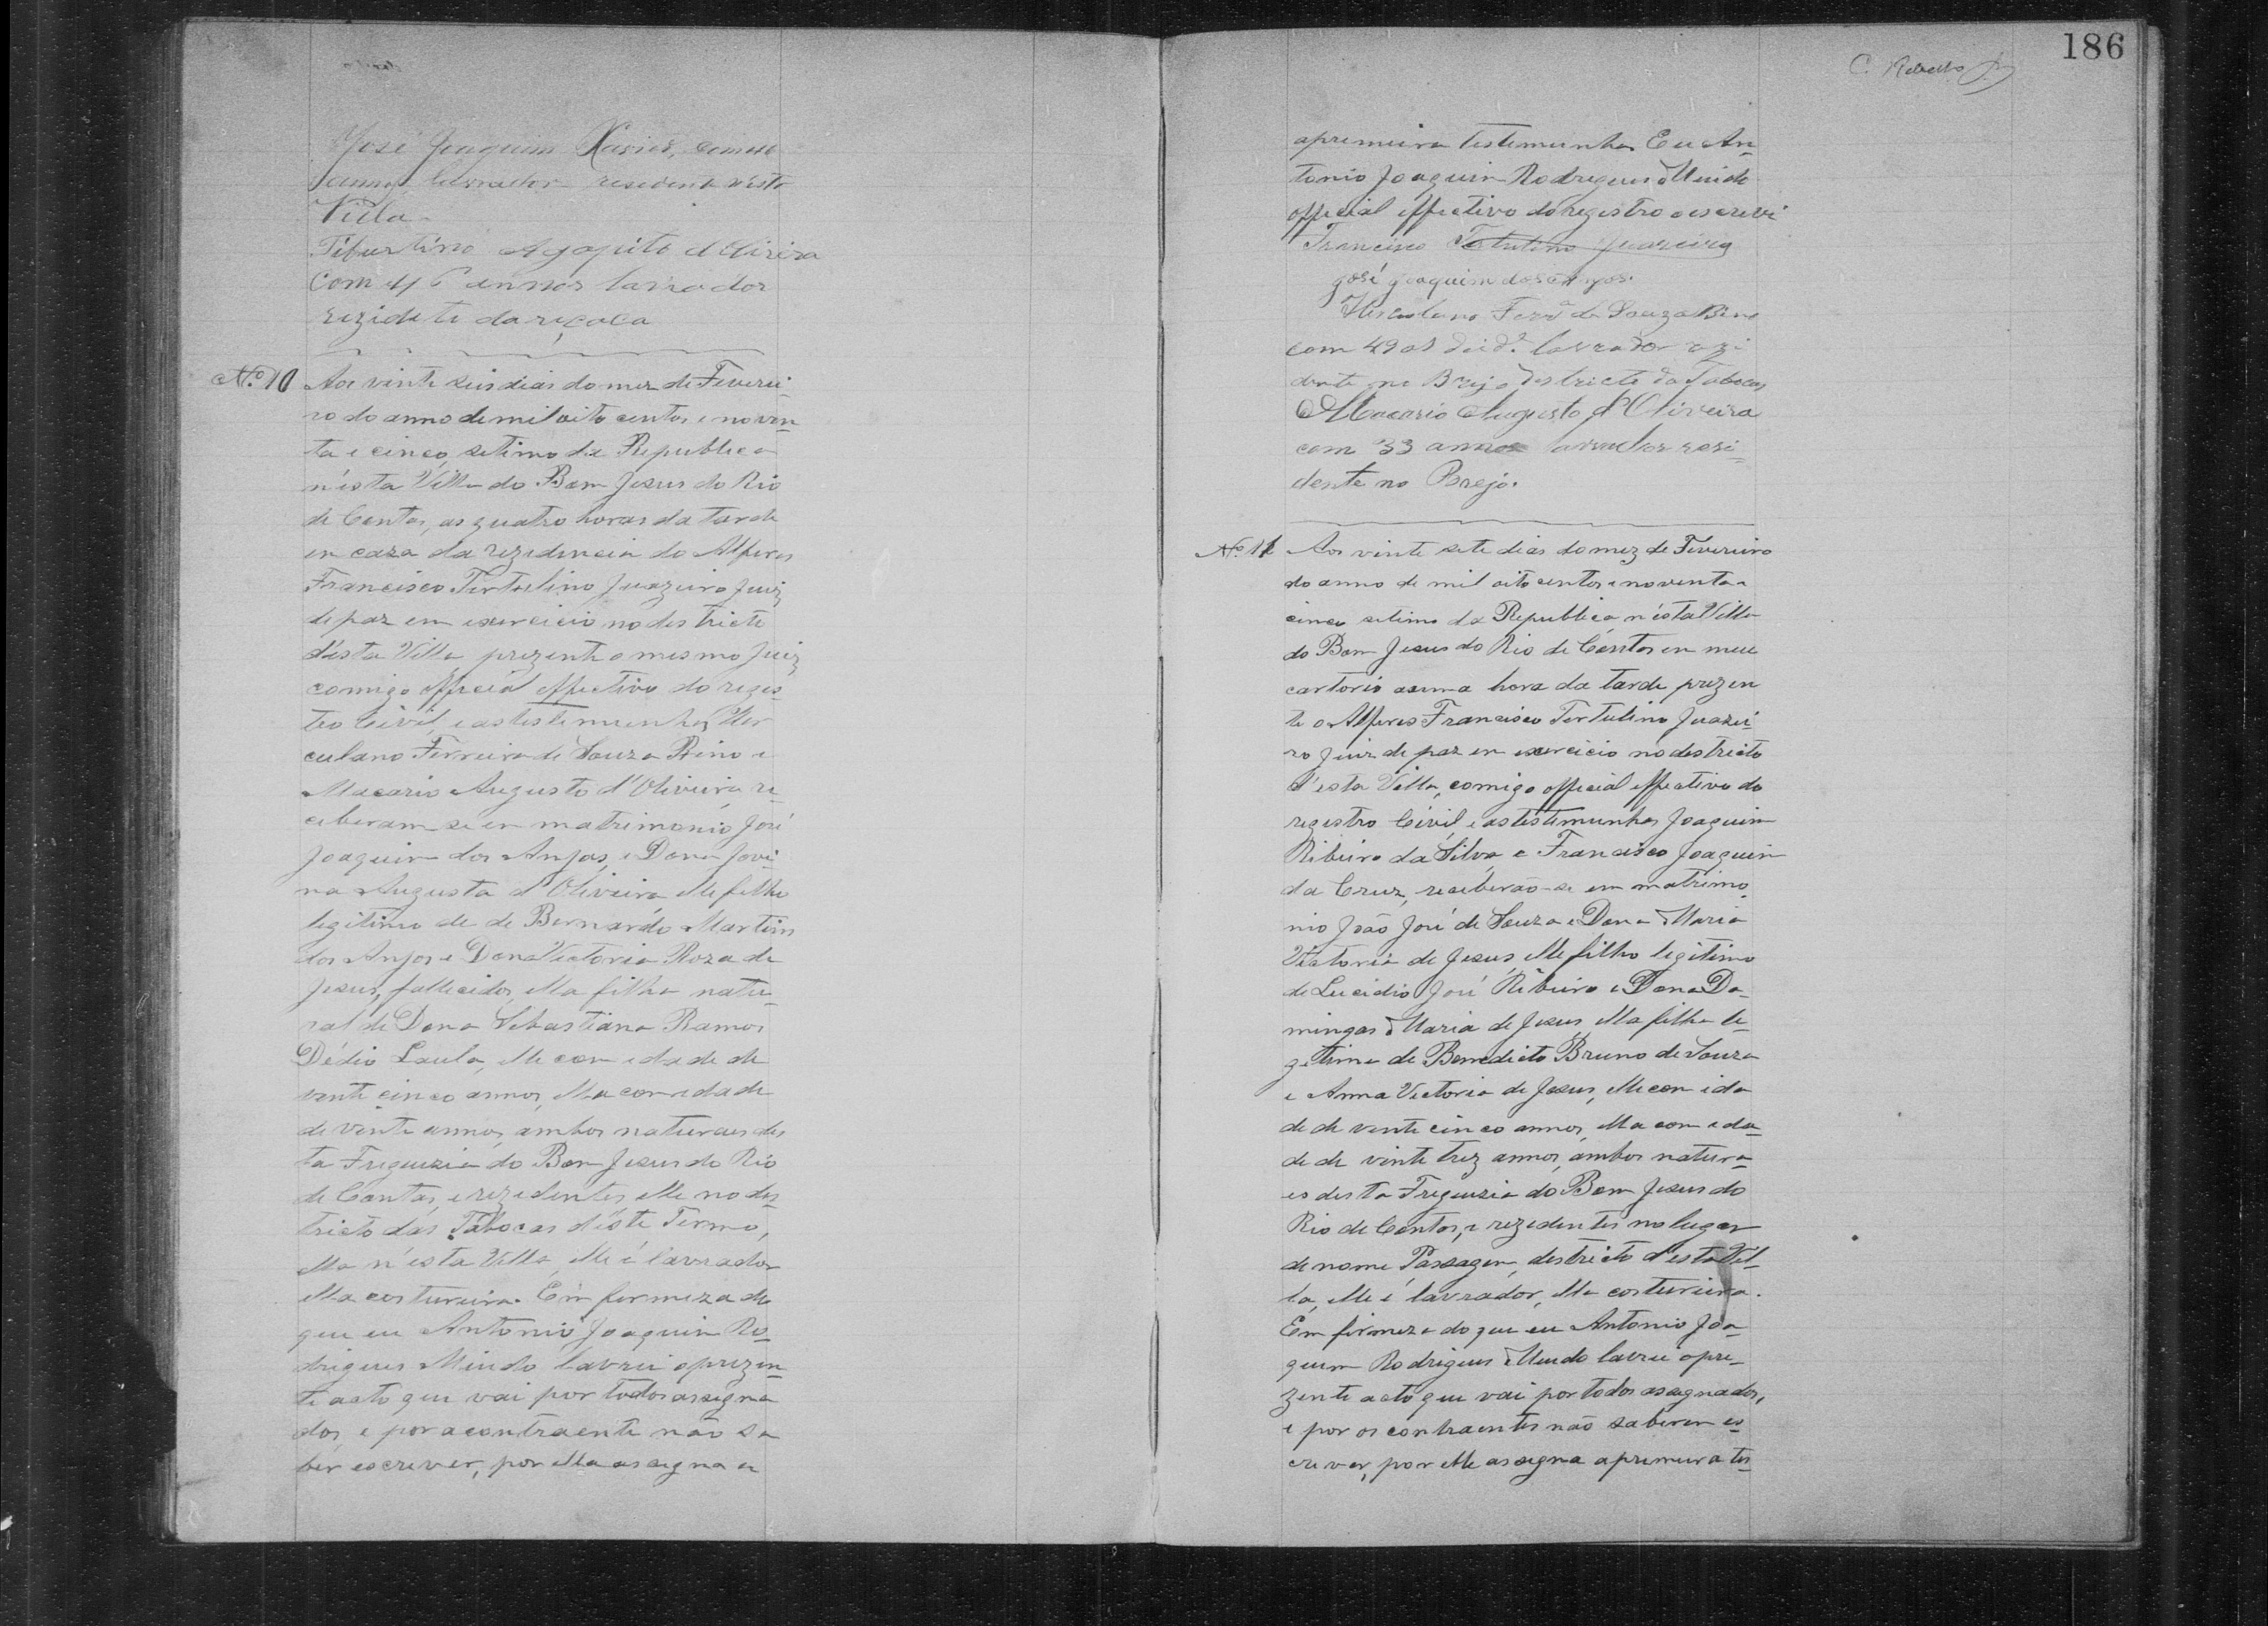 186
C. Rebello
José Joaquim Xavier, com
annos lavrador residente nesta
Villa
Tiburtino Agapito d'Olivira
Com 46 annos lavrador
rezidete da
Nº 10 Aos vinte seis dias do mez de Feverei
ro do anno de mil oito centos e noven
ta e cinco, setimo da Republica
n'esta Villa do Bom Jesus do Rio
de Contas, as quatro horas da tarde
em caza da rezidencia do Alferes
Francisco Tertulino Juazeiro Juiz
de paz em exercicio no destricto
d'esta Villa, prezente o mesmo Juiz
comigo official effectivo do regis-
tro Civil, e as testemunhas Her
culano Ferreira de Souza Bino e
Macario Augusto d'Oliveira, re
ceberam-se em matrimonio José
Joaquim dos Anjos, e Dona Jovi-
na Augusta d'Oliveira elle filho
legitimo de de Bernardo Martins
dos Anjos e Dona Victoria Roza de
Jesus, fallecidos, ella filha natu-
ral de Dona Sebastiana Ramos
Dédio Laula, elle com edade de
vente cinco annos, ella com edade
de vinte annos, ambos naturaes des
ta Freguezia do Bom Jesus do Rio
de Contas, e rezedentes elle no des-
tricto das Tabocas d'este Termo,
ella n'esta Villa, elle é lavrador
ella costureira. Em fermeza do
que eu Antonio Joaquim Ro-
drigues Mindo lavrei o prezen-
te acto que vai por todos assigna
dos, e por a contraente não sa
ber escrever, por ella assigna a
apremeira testemunha Eu An-
tonio Joaquim Rodrigues Mindo
official effectivo do registro o escrevi
Francisco Tertulino Juazeiro
José Joaquim dos Anjos.
Herculano Ferrª de Souza Bino
com 49 as de idª lavrador rezi
dente no Brejo destricto da Tabocas
Macario Augusto d'Oliveira
com 33 annos lavrador resi-
dente no Brejo.
Nº 11 Aos vinte sete dias do mez de Fevereiro
do anno de mil oito centos e noventa e
cinco setimo da Republica, n'esta Villa
do Bom Jesus do Rio de Contas em meu
cartorio a uma hora da tarde prezen
te o Alferes Francisco Tertulino Juazei-
ro Juiz de paz em exercicio no destricto
d'esta Villa, comigo official effectivo do
registro Civil, e as testemunhas Joaquim
Ribeiro da Silva e Francisco Joaquim
da Cruz, receberão-se em matrimo-
nio João José de Souza e Dona Maria
Victoria de Jesus, elle filho legitimo
de Lucidio José Ribeiro e Dona Do-
mingas Maria de Jesus, ella filha le-
getima de Benedicto Bruno de Souza
e Anna Victoria de Jesus, elle com ida
de de vente cinco annos, ella com eda-
de de vinte trez annos, ambos natura-
es desta Freguezia do Bom Jesus do
Rio de Contas, e rezedentes no lugar
de nome Passagem, destricto d'esta Vil-
la, elle é lavrador, ella costureira.
Em firmeza do que eu Antonio Joa-
quim Rodrigues Mindo lavrei o pre-
zente acto que vai por todos assegnados,
e por os contraentes não saberem es-
crever, por elle assegna a premeira tes-